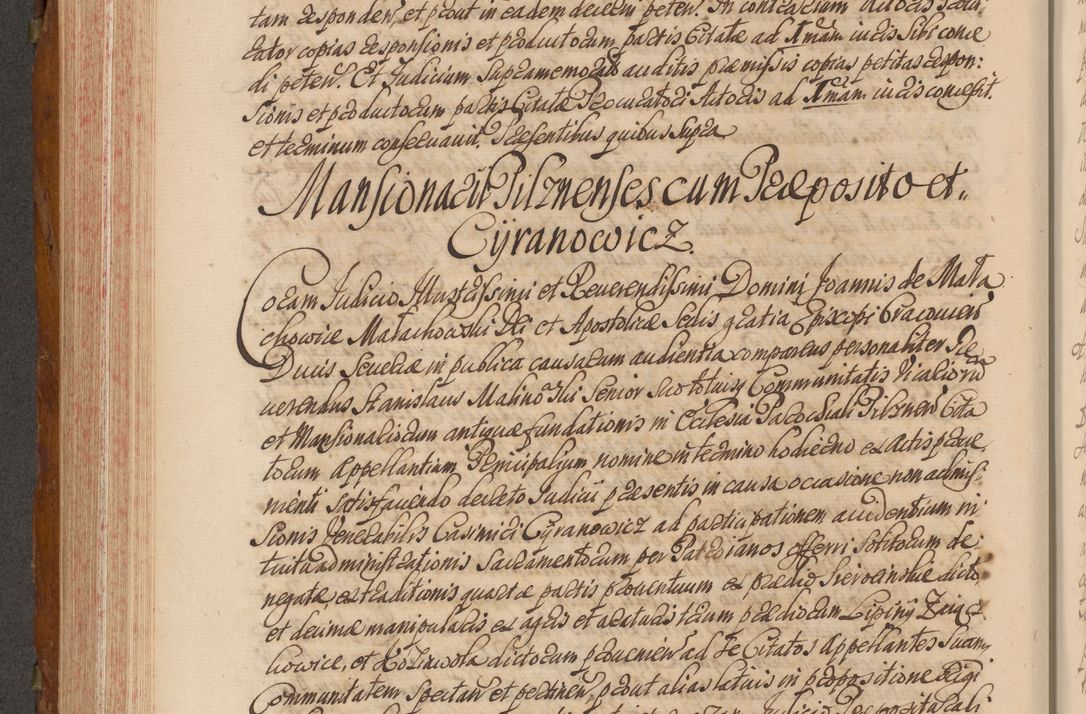 tam responden̄, et prout in eadem decerni peten̄. In contrarium Actoris Procu
rator copias responsionis et productorum partis Citatæ ad 1mam iuris sibi conce
di peten̄. Et Judicium supramemoratū auditis præmissis copias petitas respon:
sionis et productorum partis Citatæ Procuratori Actoris ad 1mam iuris concessit.
et terminum conservavit. Præsentibus quibus supra
Mansionarii Pilznenses cum Præposito et
Cyranowicz.
Coram Judicio Illustrissimi et Reverendissimi Domini Joannis de Mała
chowice Małachowski Dei et Apostolicæ Sedis gratia Episcopi Cracovien̄
Ducis Severiæ in publica causarum audientia comparens personaliter Re
verendus Stanislaus Malinowski Senior suo totiusq Communitatis Vicariorū
et Mansionariorum antiquæ fundationis in Ecclesia Parochiali Pilznen̄ Cita
torum Appellantium Principalium nomine in termino hodierno ex actis prove
nienti satisfaciendo decreto Judicii præsentis in causa occasione non admis
sionis Venerabilis Casimiri Cyranowicz ad participationem accidentium in
tuitu administrationis Sacramentorum per Patrianos offerri solitorum de
negatæ, extraditionis quartæ partis proventuum ex prædio Sierocinskie dicto
et decimæ manipularis ex agris et araturis trium prædiorum Lipiny Zaig
howice, et Kozi wola dictorum provenien̄ ad se Citatos Appellantes suamq
Communitatem spectan̄ et pertinen̄, prout alias latius in propositione Regi